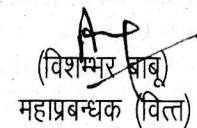 (विशम्भर बाबू)
महाप्रबन्धक (वित्त)